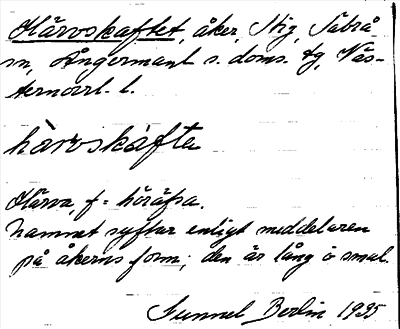 Härvskaftet, åker, Stig, Säbrå
sn, Ångermanl. s. doms. tg, Väs-
ternorrl. l.
hàrvskáfte
Härva, f = höräfsa.
Namnet syftar enligt meddelaren
på åkerns form; den är lång o smal.
Gunnel Berlin 1935